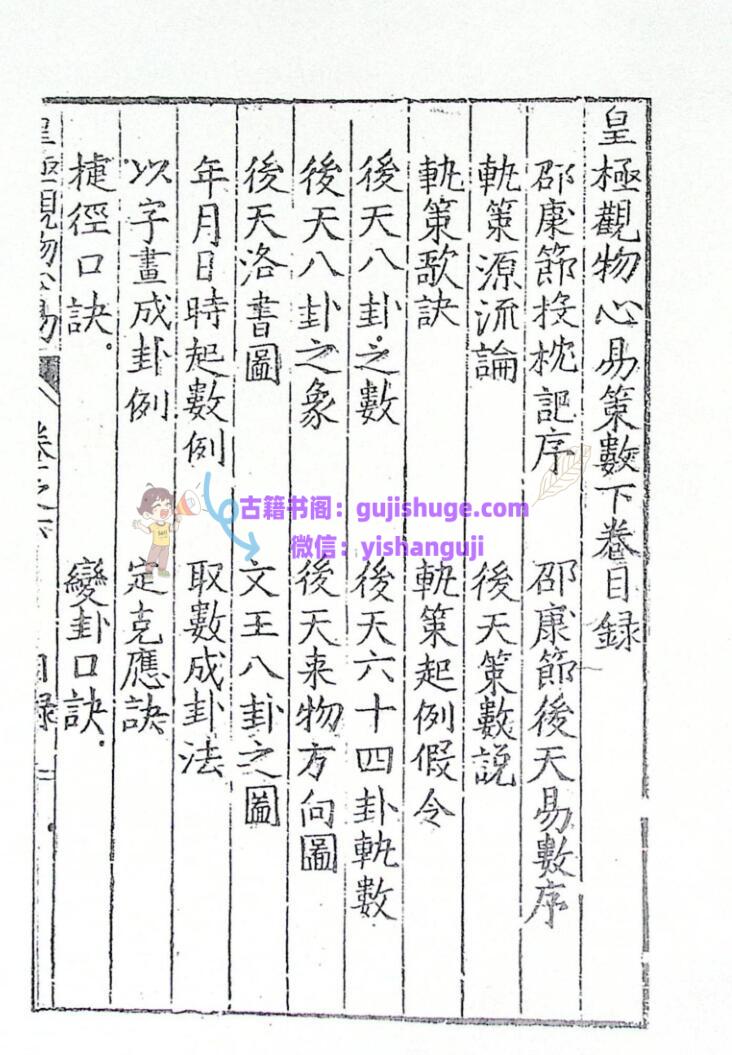 皇極觀物心易策數下卷目録
邵康節投枕記序 邵康節後天易數序
軌策源流論 後天策數説
軌策歌訣 軌策起例假令
後天八卦之數 後天六十四卦軌數
後天八卦之象 後天来物方向圖
後天洛書圖 文王八卦之圖
年月日時起數例 取數成卦法
以字畫成卦例 定克應訣
捷徑口訣 變卦口訣
皇極觀物心易 卷之下 目録 一
古籍书阁：gujishuge.com
微信：yishanguji